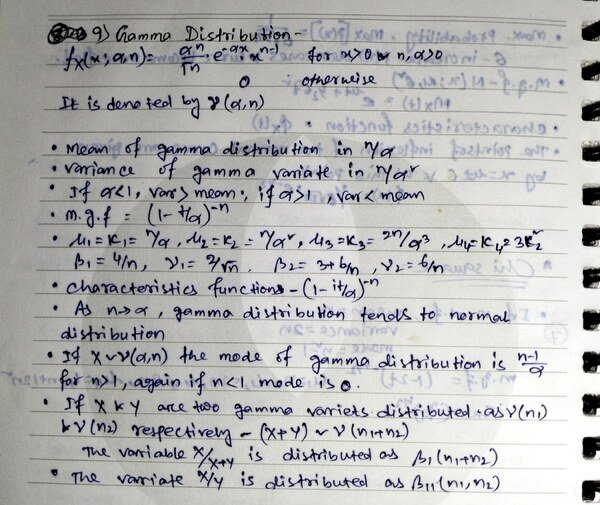 9) Gamma Distribution -
fx(x; α, n) = αⁿ/Γn · e^-αx x^n-1 for x>0 & n, α>0
0 otherwise
It is denoted by γ(α, n)
• Mean of gamma distribution in n/α
• variance of gamma variate in n/α²
• If α<1, var > mean; if α>1, var < mean
• m.g.f = (1-t/α)^-n
• μ1 = K1 = n/α, μ2 = K2 = n/α², μ3 = K3 = 2n/α³, μ4 = K4 = 3K2²
β1 = 4/n, γ1 = 2/√n, β2 = 3+6/n, γ2 = 6/n
• characteristics functions - (1-it/α)^-n
• As n→α, gamma distribution tends to normal
distribution
• If X ~ γ(α, n) the mode of gamma distribution is n-1/α
for n>1, again if n<1 mode is 0.
• If X & Y are two gamma variets distributed as γ(n1)
& γ(n2) respectively - (X+Y) ~ γ(n1+n2)
The variable X/X+Y is distributed as β1(n1+n2)
• The variate X/Y is distributed as β11(n1, n2)